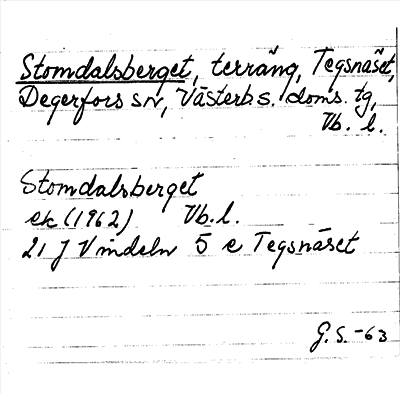 Stomdalsberget, terräng, Tegsnäset,
Degerfors sn, Västerb. s. doms. tg,
Vb. l.
Stomdalsberget
ek (1962) Vb. l.
21 J Vindeln 5 e Tegsnäset
G. S. -63